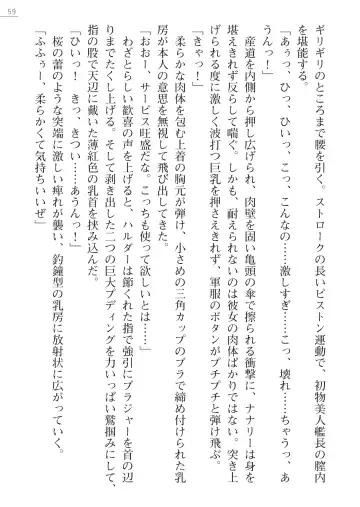 59
ギリギリのところまで腰を引く、ストロークの長いピストン運動で、初物美人艦長の膣内
を堪能する。
「あぅっ、ひっ、ひいっ、こっ、こんなの……激しすぎ……こっ、壊れ……ちゃうっ、あ
うんっ！」
産道を内側から押し広げられ、肉壁を固い亀頭の傘で擦られる衝撃に、ナナリーは身を
堪えきれず反らして喘ぐ。しかも、耐えられないのは彼女の肉体ばかりではない。突き上
げられる度に激しく波打つ巨乳を押さえきれず、軍服のボタンがプチプチと弾け飛ぶ。
「きゃっ！」
柔らかな肉体を包む上着の胸元が弾け、小さめの三角カップのブラで締め付けられた乳
房が本人の意思を無視して飛び出してきた。
「おおー、サービス旺盛だな。こっちも使って欲しいとは……」
わざとらしい歓喜の声を上げると、ハルダーは節くれた指で強引にブラジャーを首の辺
りまでたくし上げる。そして剥き出した二つの巨大プディングを力いっぱい鷲掴みにして、
指の股で天辺に戴いた薄紅色の乳首を挟み込んだ。
「ひいっ！　きっ、きつい……あうんっ！」
桜の蕾のような突端に激しい痺れが襲い、釣鐘型の乳房に放射状に広がっていく。
「ふふぅー、柔らかくて気持ちいいぜ」